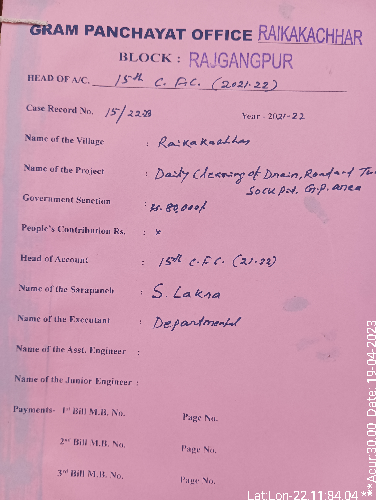 GRAM PANCHAYAT OFFICE RAIKAKACHHAR
BLOCK : RAJGANGPUR
HEAD OF A/C. 15th C.F.C. (2021-22)
Case Record No. 15/22-23 Year - 2021-22
Name of the Village : Raikakachhar
Name of the Project : Daily Cleaning of Drain, Road and
Sock Pit. G.P. area
Government Senction : Rs. 80,000/-
People's Contribution Rs. : x
Head of Account : 15th C.F.C. (21-22)
Name of the Sarapanch : S. Lakra
Name of the Executant : Departmental
Name of the Asst. Engineer :
Name of the Junior Engineer :
Payments- 1st Bill M.B. No. Page No.
2nd Bill M.B. No. Page No.
3rd Bill M.B. No. Page No.
Lat Lon-22.11:84.04
***Acur:30.00 Date: 19-04-2023